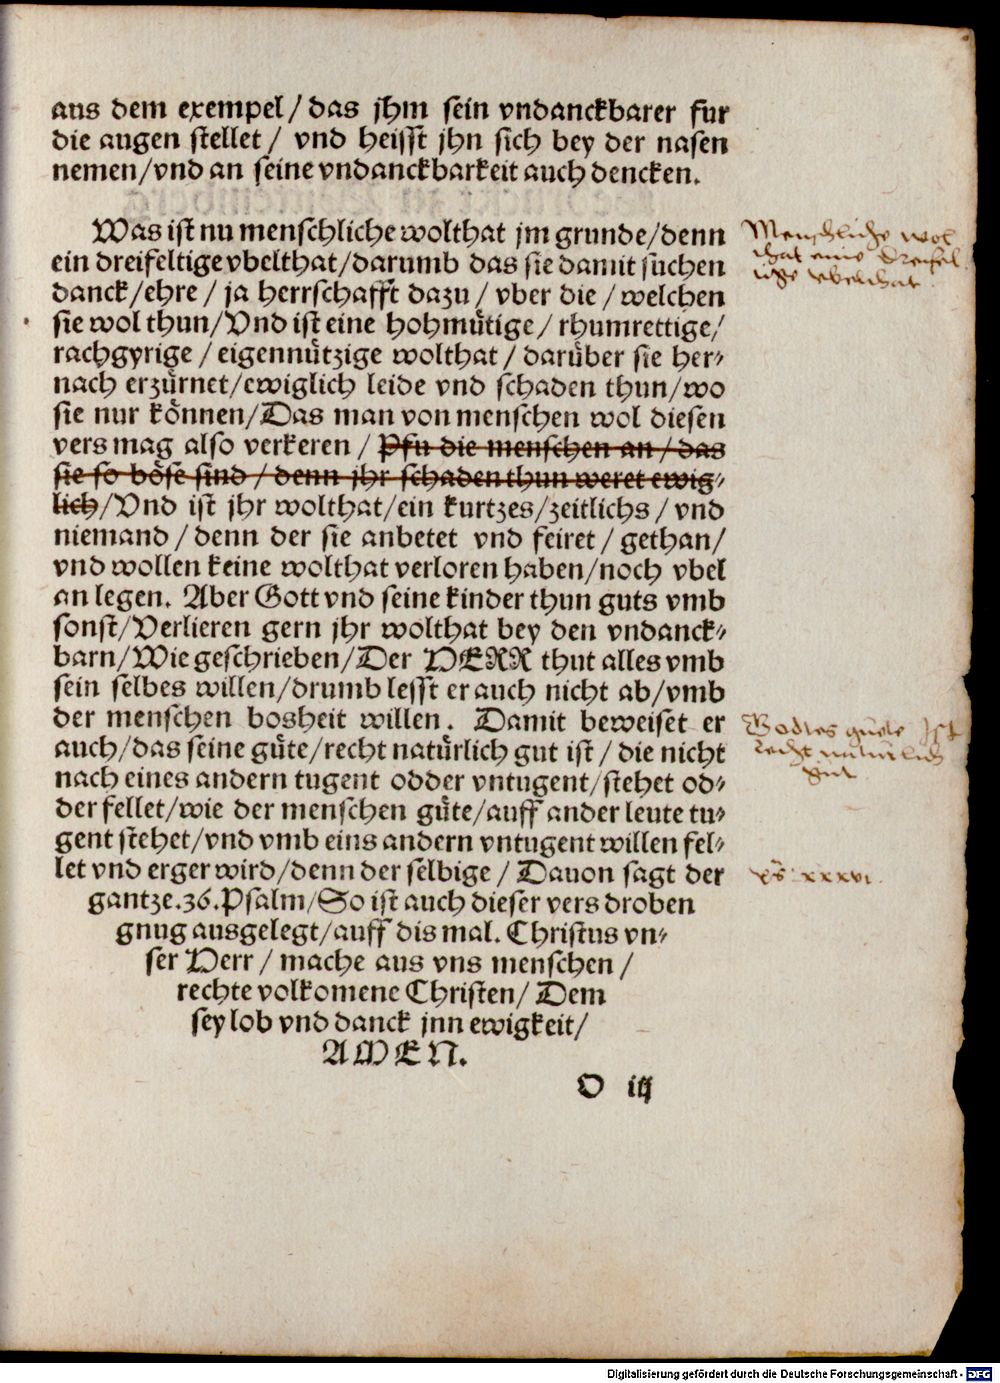 aus dem exempel / das jhm sein vndanckbarer fur
die augen stellet / vnd heisst jhn sich bey der nasen
nemen/vnd an seine vndanckbarkeit auch dencken.
Was ist nu menschliche wolthat jm grunde/denn
ein dreifeltige vbelthat/darumb das sie damit suchen
danck/ehre / ja herrschafft dazu / vber die / welchen
sie wol thun/Vnd ist eine hohmütige / rhumrettige/
rachgyrige / eigennützige wolthat / darüber sie her-
nach erzürnet/ewiglich leide vnd schaden thun/wo
sie nur können/Das man von menschen wol diesen
vers mag also verkeren / Pfu die menschen an / das
sie so böse sind / denn jhr schaden thun weret ewig-
lich/Vnd ist jhr wolthat/ein kurtzes/zeitlichs / vnd
niemand / denn der sie anbetet vnd feiret / gethan/
vnd wollen keine wolthat verloren haben/noch vbel
an legen. Aber Gott vnd seine kinder thun guts vmb
sonst/Verlieren gern jhr wolthat bey den vndanck-
barn/Wie geschrieben/Der HERR thut alles vmb
sein selbes willen/drumb lesst er auch nicht ab/vmb
der menschen bosheit willen. Damit beweiset er
auch/das seine güte/recht natürlich gut ist / die nicht
nach eines andern tugent odder vntugent/stehet od-
der fellet/wie der menschen güte/auff ander leute tu-
gent stehet/vnd vmb eins andern vntugent willen fel-
let vnd erger wird/denn der selbige / Dauon sagt der
gantze.36.Psalm/So ist auch dieser vers droben
gnug ausgelegt/auff dis mal. Christus vn-
ser Herr / mache aus vns menschen /
rechte volkomene Christen/ Dem
sey lob vnd danck jnn ewigkeit/
AMEN.
O iij
Menschliche wol
that eine dreifel
tige vbelthat
Gottes guete Ist
recht naturlich
gut
xxxvi.
Digitalisierung gefördert durch die Deutsche Forschungsgemeinschaft - DFG